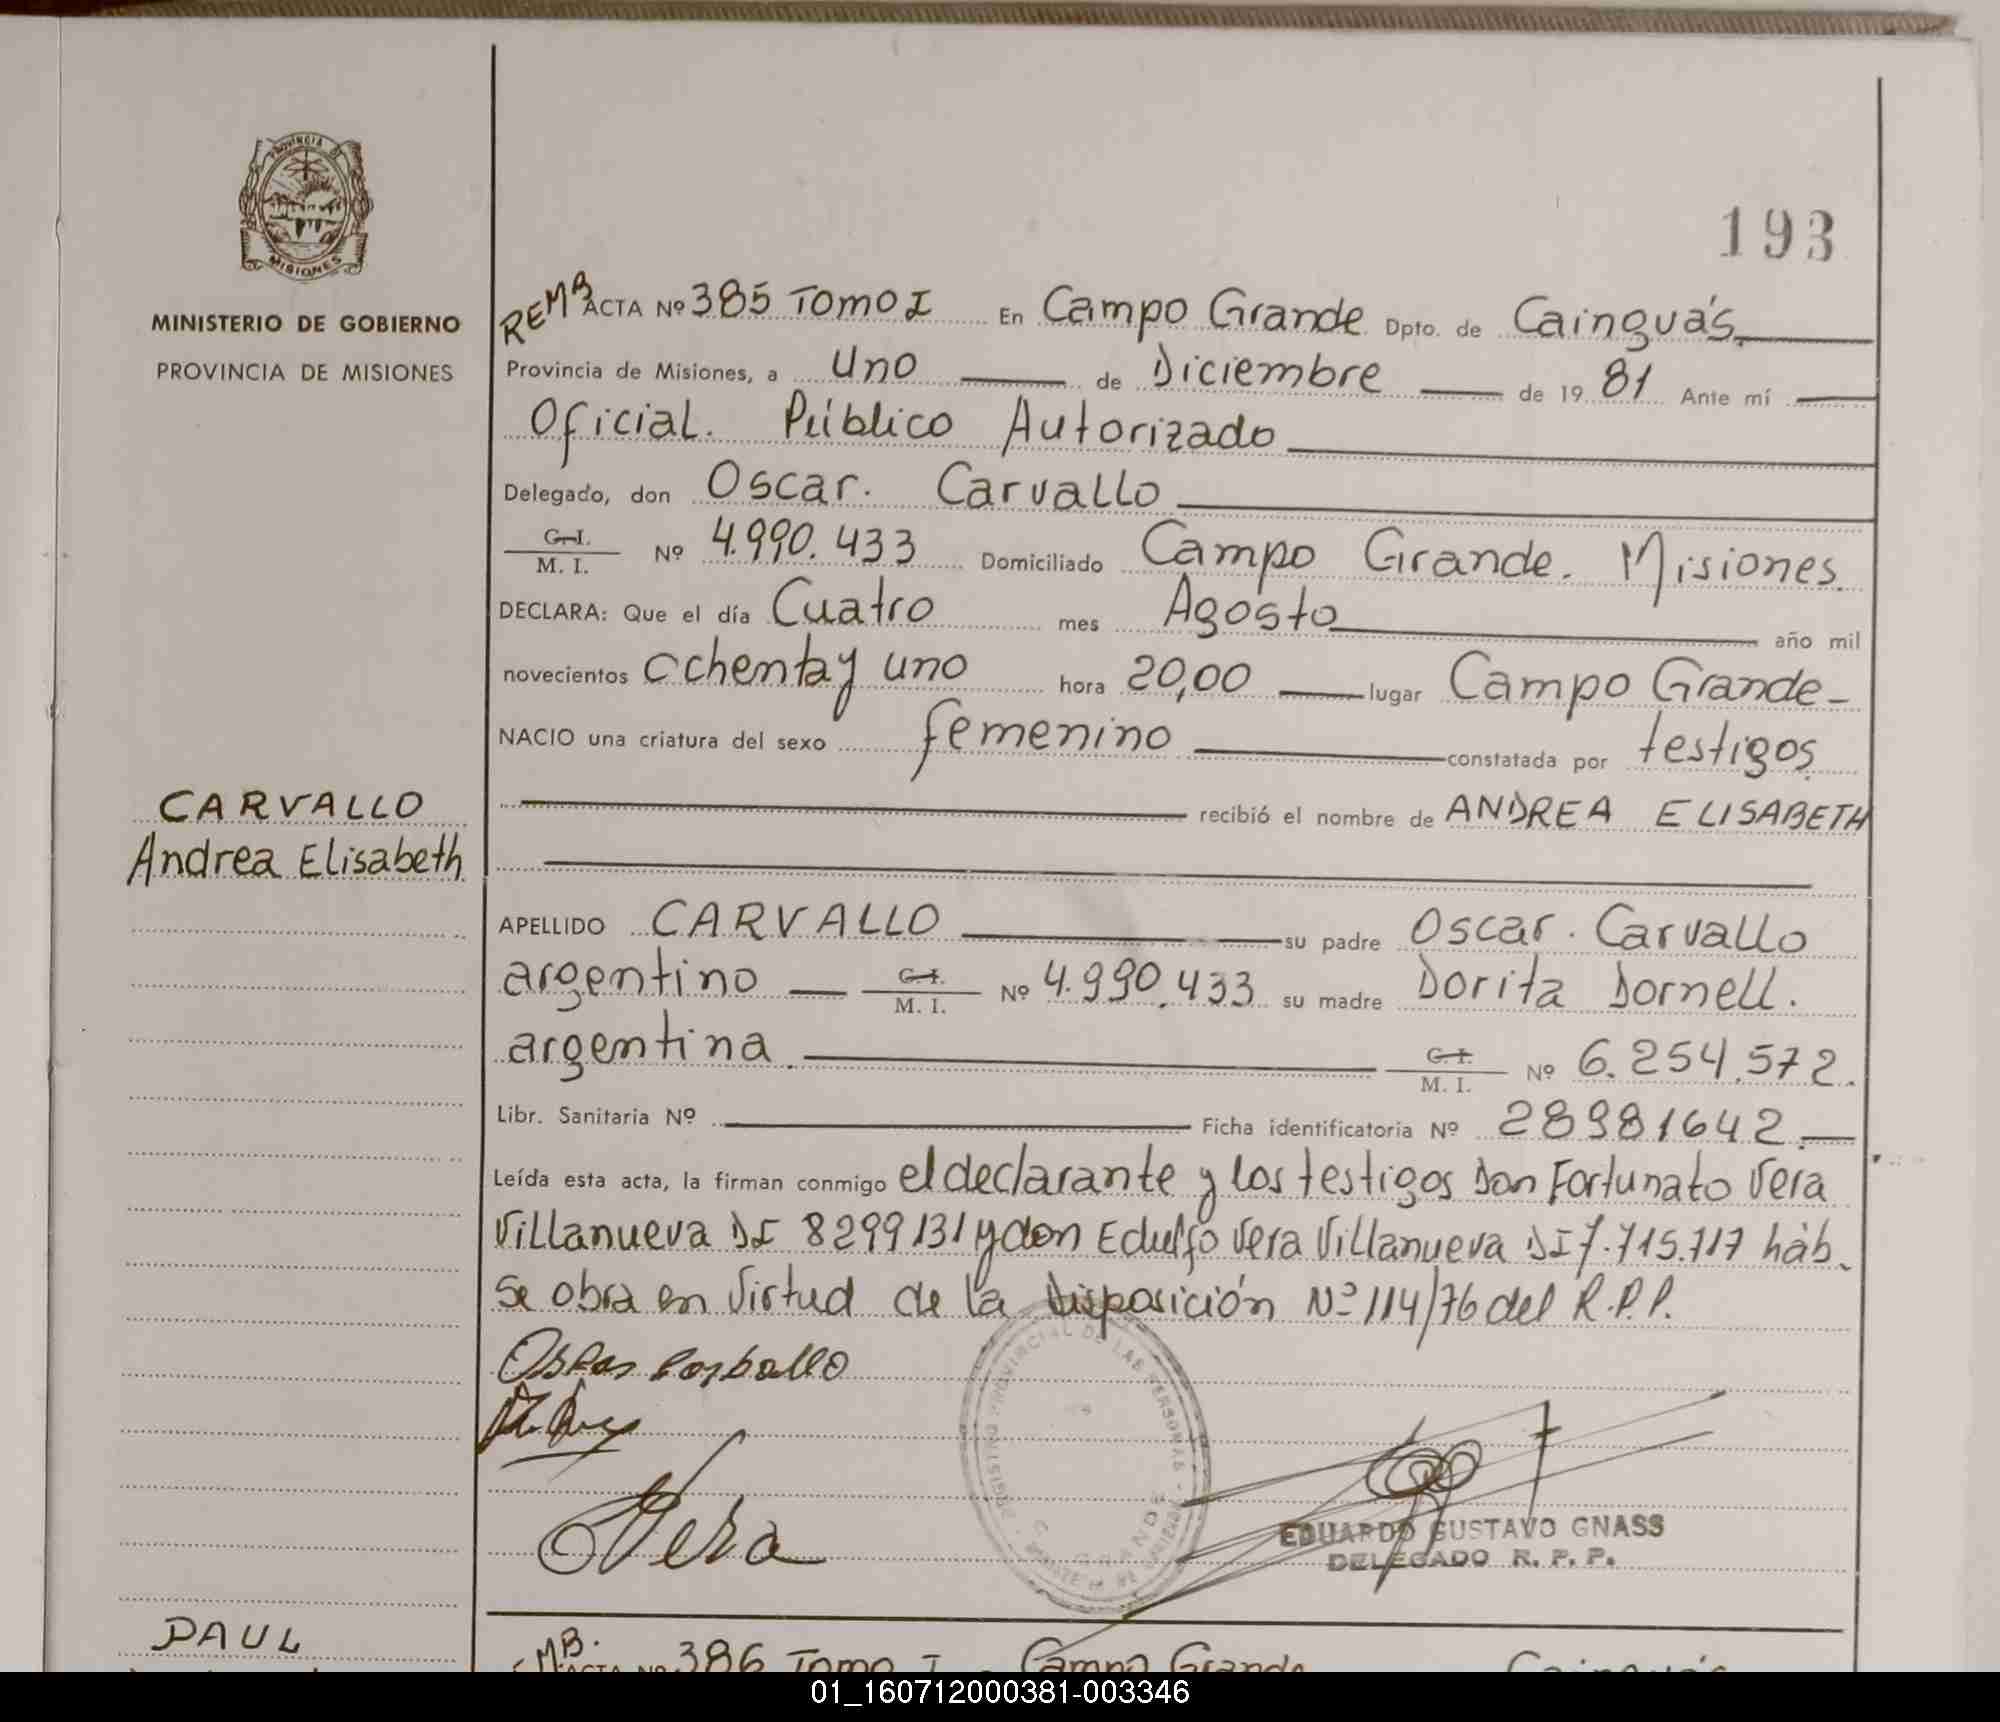 PROVINCIA DE
MISIONES
MINISTERIO DE GOBIERNO
PROVINCIA DE MISIONES
193
REMB ACTA Nº 385 Tomo I En Campo Grande Dpto. de Cainguás
Provincia de Misiones, a uno de Diciembre de 19 81 Ante mí
Oficial. Público Autorizado
Delegado, don Oscar. Carvallo
C. I. / M. I. Nº 4.990.433 Domiciliado Campo Grande. Misiones
DECLARA: Que el día Cuatro mes Agosto año mil
novecientos ochenta y uno hora 20,00 lugar Campo Grande-
NACIO una criatura del sexo femenino constatada por testigos
recibió el nombre de ANDREA ELISABETH
CARVALLO
Andrea Elisabeth
APELLIDO CARVALLO su padre Oscar. Carvallo
argentino C. I. / M. I. Nº 4.990.433 su madre Dorita Dornell.
argentina C. I. / M. I. Nº 6.254.572.
Libr. Sanitaria Nº Ficha identificatoria Nº 28981642
Leída esta acta, la firman conmigo el declarante y los testigos don Fortunato Vera
Villanueva DI 8299131 y don Edulfo Vera Villanueva DI 7.715.717 háb.
se obra en virtud de la disposición Nº 114/76 del R.P.P.
Oscar Carballo
Vera
REGISTRO PROVINCIAL DE LAS PERSONAS
GRANDE
EDUARDO GUSTAVO GNASS
DELEGADO R. P. P.
PAUL
MB. ACTA Nº 386 Tomo I Campo Grande Cainguás
01_160712000381-003346